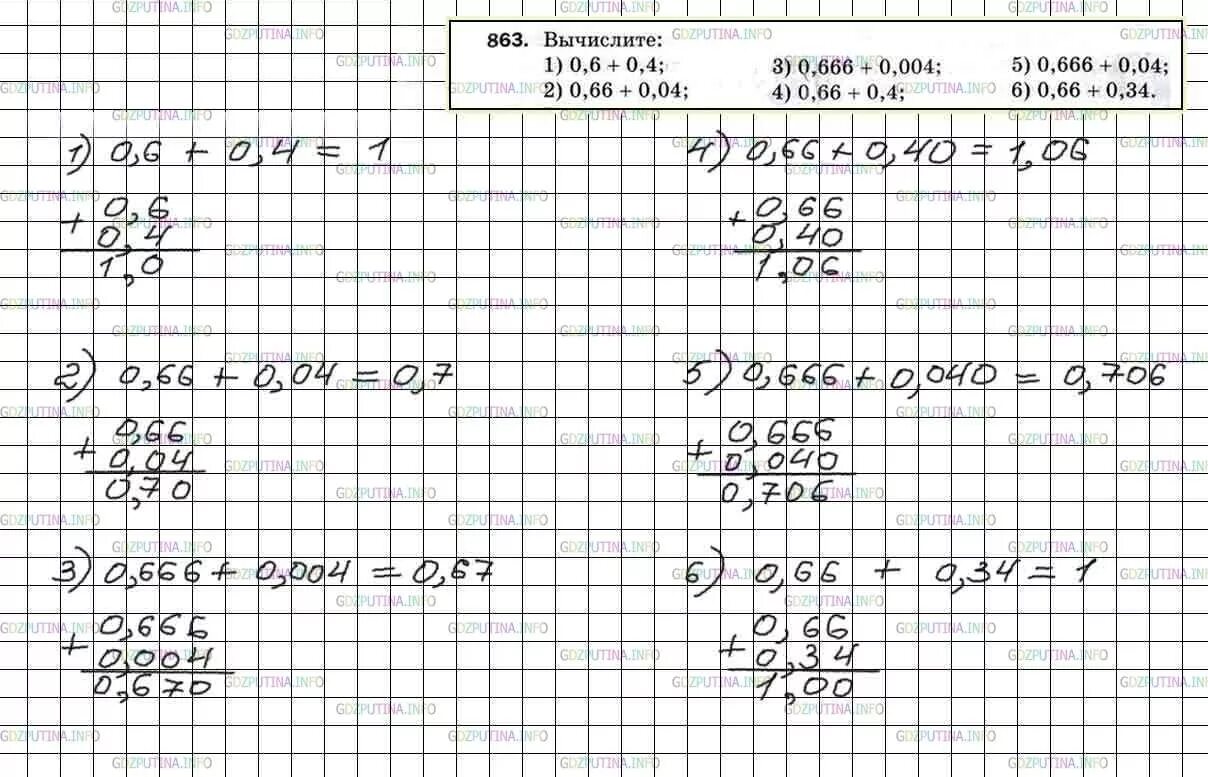 863. Вычислите:
1) 0,6 + 0,4;
2) 0,66 + 0,04;
3) 0,666 + 0,004;
4) 0,66 + 0,4;
5) 0,666 + 0,04;
6) 0,66 + 0,34.
1) 0,6 + 0,4 = 1
+ 0,6
0,4
1,0
2) 0,66 + 0,04 = 0,7
+ 0,66
0,04
0,70
3) 0,666 + 0,004 = 0,67
+ 0,666
0,004
0,670
4) 0,66 + 0,40 = 1,06
+ 0,66
0,40
1,06
5) 0,666 + 0,040 = 0,706
+ 0,666
0,040
0,706
6) 0,66 + 0,34 = 1
+ 0,66
0,34
1,00
GDZPUTINA.INFO